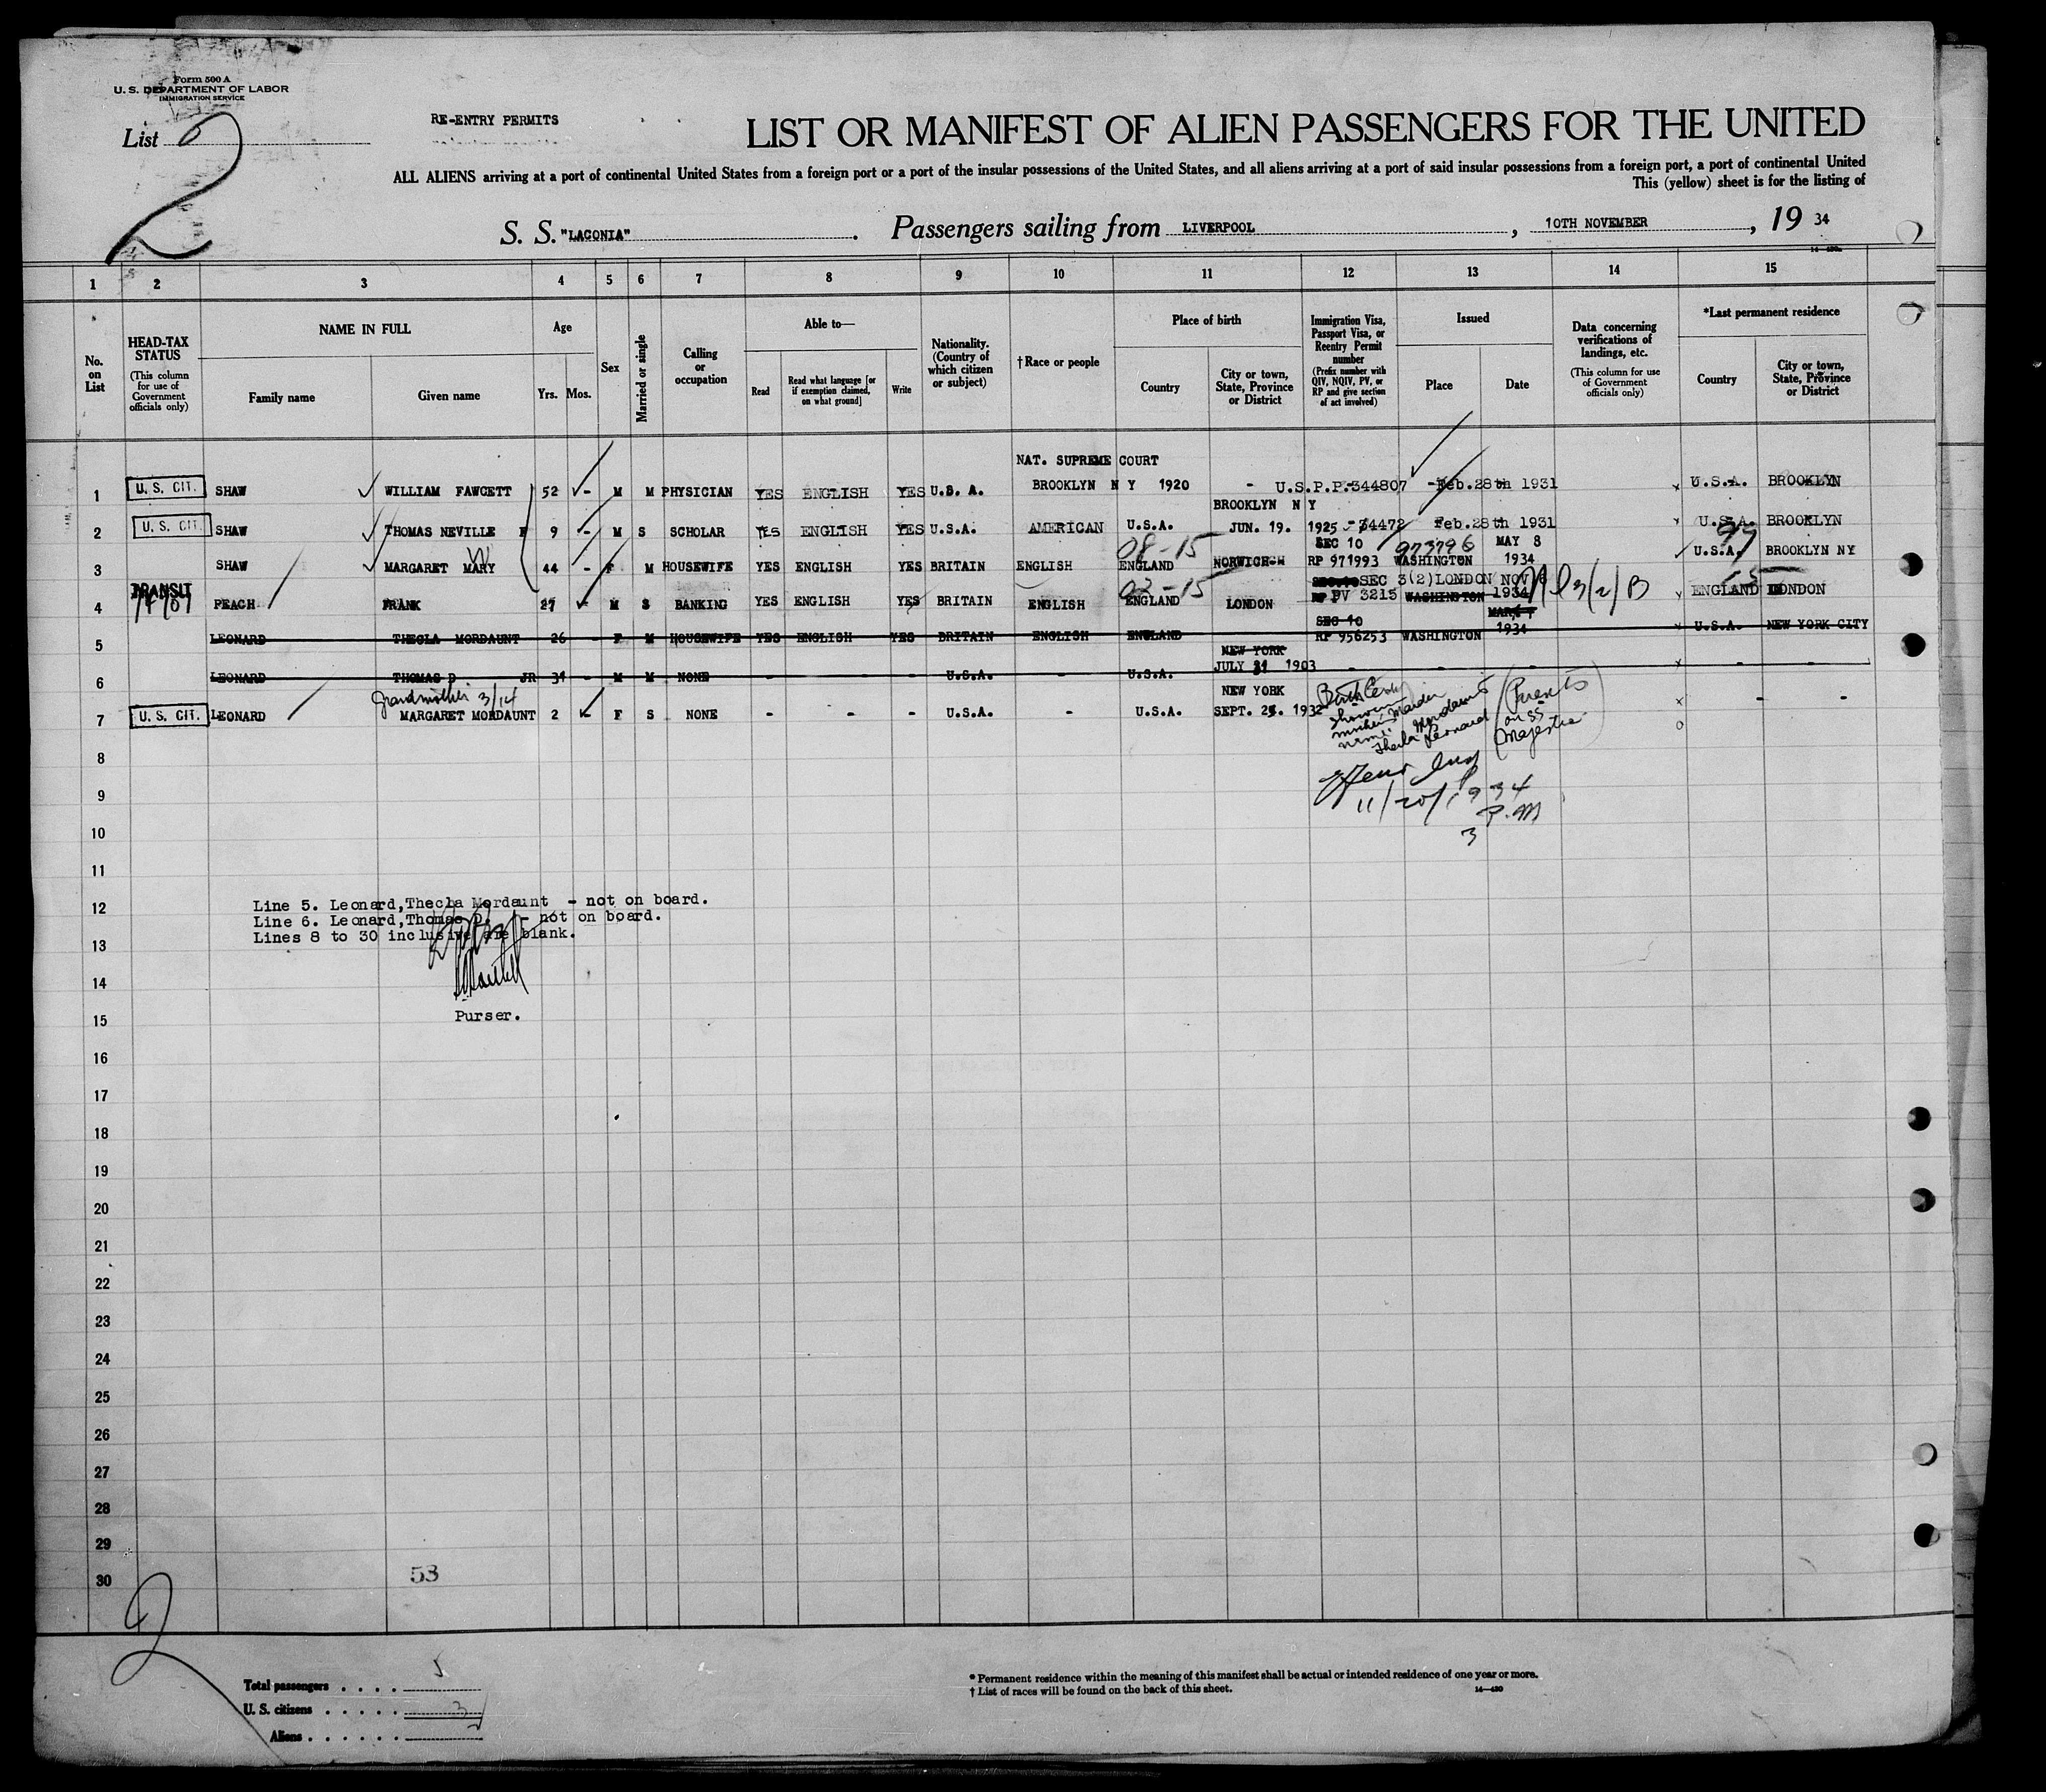 Form 500 A
U. S. DEPARTMENT OF LABOR
IMMIGRATION SERVICE
List 2
RE-ENTRY PERMITS
LIST OR MANIFEST OF ALIEN PASSENGERS FOR THE UNITED
ALL ALIENS arriving at a port of continental United States from a foreign port or a port of the insular possessions of the United States, and all aliens arriving at a port of said insular possessions from a foreign port, a port of continental United
This (yellow) sheet is for the listing of
S. S. "LACONIA" . Passengers sailing from LIVERPOOL , 10TH NOVEMBER , 19 34
1 2 3 4 5 6 7 8 9 10 11 12 13 14 15
No. on List
HEAD-TAX STATUS (This column for use of Government officials only)
NAME IN FULL Family name Given name
Age Yrs. Mos.
Sex
Married or single
Calling or occupation
Able to— Read Read what language [or if exemption claimed, on what ground] Write
Nationality. (Country of which citizen or subject)
† Race or people
Place of birth Country City or town, State, Province or District
Immigration Visa, Passport Visa, or Reentry Permit number (Prefix number with QIV, NQIV, PV, or RP and give section of act involved)
Issued Place Date
Data concerning verifications of landings, etc. (This column for use of Government officials only)
*Last permanent residence Country City or town, State, Province or District
NAT. SUPREME COURT
1 U. S. CIT. SHAW WILLIAM FAWCETT 52 - M M PHYSICIAN YES ENGLISH YES U.S.A. BROOKLYN N Y 1920 - U.S.P.P.344807 - Feb.28th 1931 U.S.A. BROOKLYN
BROOKLYN N Y
2 U. S. CIT. SHAW THOMAS NEVILLE F 9 - M S SCHOLAR YES ENGLISH YES U.S.A. AMERICAN U.S.A. JUN. 19. 1925 - 34472 Feb.28th 1931 U.S.A. BROOKLYN
08-15 SEC 10 973796 MAY 8 99
3 SHAW MARGARET MARY 44 - F M HOUSEWIFE YES ENGLISH YES BRITAIN ENGLISH ENGLAND NORWICH RP 971993 WASHINGTON 1934 U.S.A. BROOKLYN NY
TRANSIT 02-15 SEC 3(2) LONDON NOV
4 PEACH FRANK 27 - M S BANKING YES ENGLISH YES BRITAIN ENGLISH ENGLAND LONDON PV 3215 WASHINGTON 1934 3(2) B ENGLAND LONDON
SEC 10
5 LEONARD THECLA MORDAUNT 26 - F M HOUSEWIFE YES ENGLISH YES BRITAIN ENGLISH ENGLAND RP 956253 WASHINGTON 1934 U.S.A. NEW YORK CITY
NEW YORK
6 LEONARD THOMAS D JR 31 - M M NONE - - - U.S.A. - U.S.A. JULY 31 1903 - - - - -
Grandmother 3/14 NEW YORK
7 U. S. CIT. LEONARD MARGARET MORDAUNT 2 - F S NONE - - - U.S.A. - U.S.A. SEPT. 1932 - -
Birth Cert showing mother's Maiden name Mordaunt Thecla Leonard
(Parents on SS Majestic)
11/20/1934
P.M
3
8
9
10
11
12
13
14
15
16
17
18
19
20
21
22
23
24
25
26
27
28
29
30
Line 5. Leonard,Thecla Mordaunt - not on board.
Line 6. Leonard,Thomas D. - not on board.
Lines 8 to 30 inclusive are blank.
Purser.
53
2
Total passengers . . . . 5
U. S. citizens . . . . . 3
Aliens . . . . . .
* Permanent residence within the meaning of this manifest shall be actual or intended residence of one year or more.
† List of races will be found on the back of this sheet.
14—430